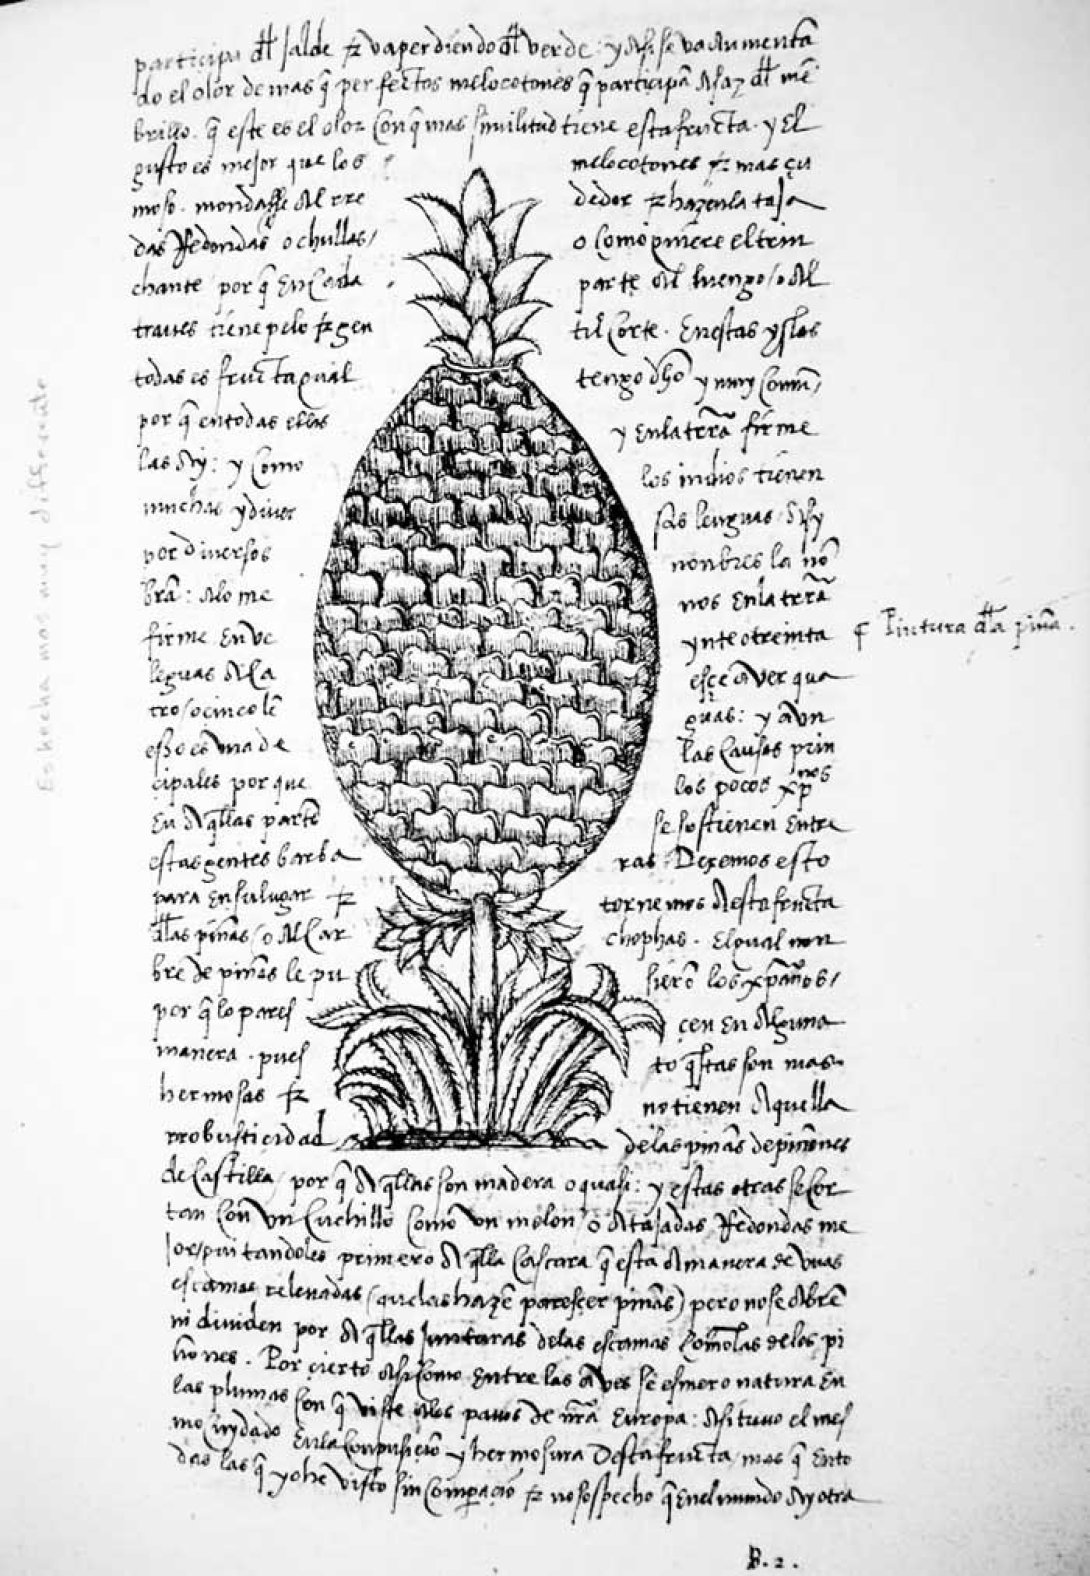 participa dl jalde & va perdiendo dl verde: y Asi se va Aumentā
do el olor de mas q̃ perfectos melocotones q̃ participā Asaz dl mē
brillo. q̃ este es el olor con q̃ mas similitud tiene esta fructa. y El
gusto es mejor que los melocotones & mas çu
moso. mondasse Al rre dedor & hazenla taja
das Redondas o chullas/ o como quiere el trin
chante por q̃ En Cada parte Al luengo/o Al
traues tiene pelo & gen til Corte. En estas yslas
todas es fructa qual tengo dho y muy Comū/
por q̃ en todas ellas y En la trrā firme
las Ay: y Como los indios tienen
muchas y diuer sas lenguas Asy
por diuersos nonbres la nō
brā: Alo me nos En la trrā
firme En ve ynte o treinta
leguas Ala esçe Aver qua
tro/o cinco lē guas: y Avn
esso es vna de las Causas prin
çipales por que los pocos xp̄nos
En Aq̃llas partes se sostienen Entre
estas gentes barba ras. Dexemos esto
para En su lugar & tornemos A esta fructa
dlas piñas/o Alcar chophas. El qual non
bre de piñas le pu sierō los xp̄ianos/
por q̃ lo pares çen En Alguna
manera. pues to q̃stas son mas
hermosas & no tienen Aquella
rrobusticidad de las piñas de piñones
de Castilla/ por q̃ Aq̃llas son madera o quasi: y estas otras se Cor
tan con vn Cuchillo Como vn melon/ o A tajadas Redondas me
jor/ quitandoles primero Aq̃lla Cascara q̃ esta A manera de vnas
escamas relevadas (que las hazē paresçer piñas) pero no se Abrē
ni dividen por Aq̃llas Junturas de las escamas Como las de los pi
ñones. Por çierto Asi Como Entre las Aves se esmero natura En
las plumas Con q̃ viste Alos pavos de nrā Europa: Asi tuvo el mes
mo Cuydado En la Conpusiçiō y hermosura Desta fructa/ mas q̃ En to
das las q̃ yo he visto sin Comparaçiō & no sospecho q̃ En el mundo Ay otra
¶ Pintura dla piña.
Es hecha mas muy differente
B. 2.